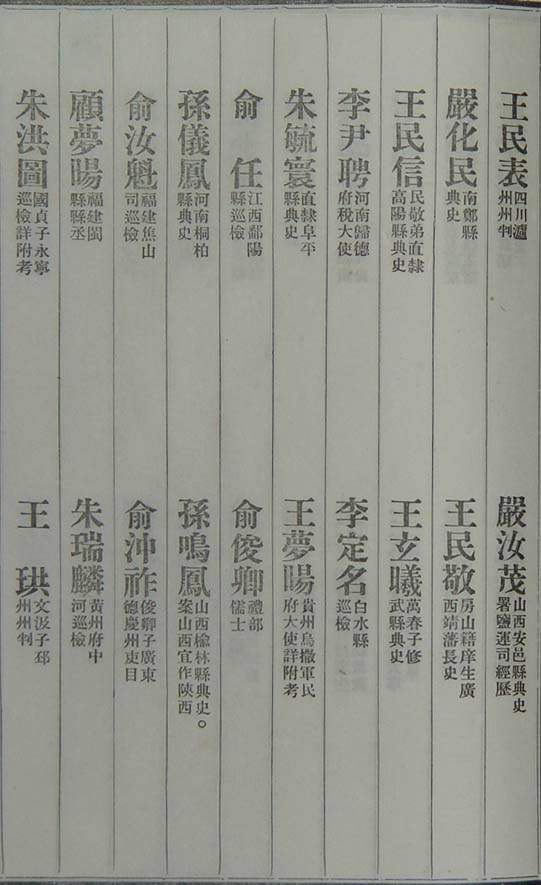 王民表 四川瀘州州判
嚴汝茂 山西安邑縣典史署鹽運司經歷
嚴化民 南鄭縣典史
王民敬 房山籍庠生廣西靖藩長史
王民信 民敬弟直隸高陽縣典史
王玄曦 萬春子修武縣典史
李尹聘 河南歸德府稅大使
李定名 白水縣巡檢
朱毓寰 直隸阜平縣典史
王夢暘 貴州烏撒軍民府大使詳附考
俞任 江西鄱陽縣巡檢
俞俊卿 禮部儒士
孫儀鳳 河南桐柏縣典史
孫鳴鳳 山西楡林縣典史。案山西宜作陝西
俞汝魁 福建焦山司巡檢
俞沖祚 俊卿子廣東德慶州吏目
顧夢暘 福建閩縣縣丞
朱瑞麟 黃州府中河巡檢
朱洪圖 國貞子永寧巡檢詳附考
王珙 文汲子邳州州判